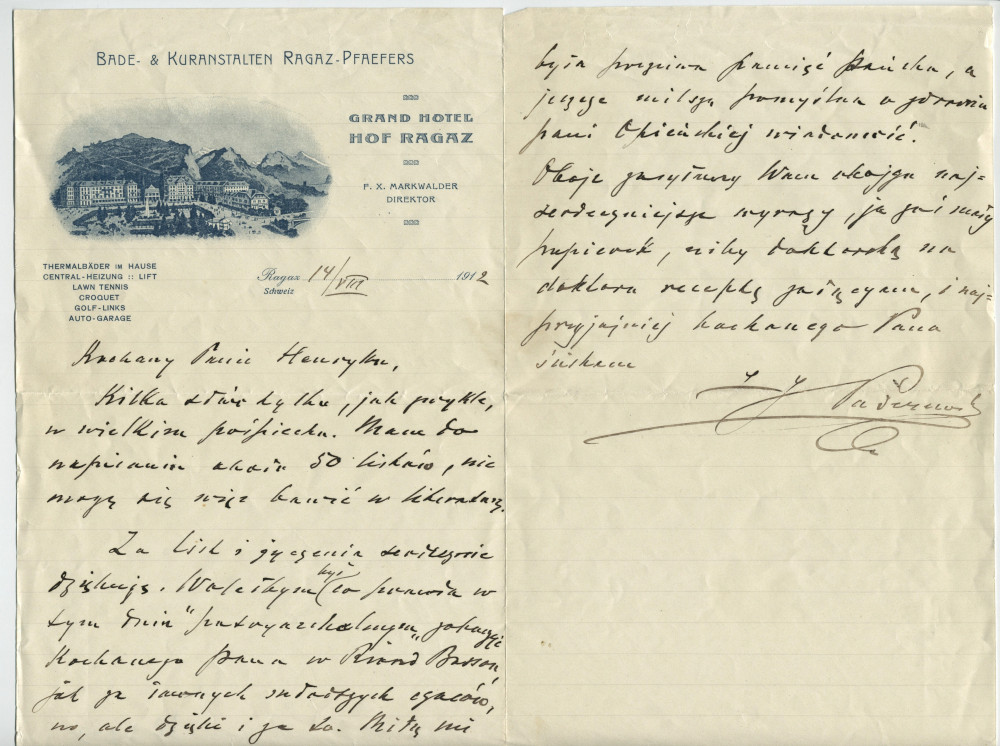 BADE- & KURANSTALTEN RAGAZ-PFAEFERS
GRAND HOTEL
HOF RAGAZ
F. X. MARKWALDER
DIREKTOR
THERMALBÄDER IM HAUSE
CENTRAL-HEIZUNG :: LIFT
LAWN TENNIS
CROQUET
GOLF-LINKS
AUTO-GARAGE
Ragaz 14/VIII 1912
Schweiz
Kochany Panie Henryku,
Kilka słów tylko, jak zwykle,
w wielkim pośpiechu. Mam do
napisania około 50 listów, nie
mogę się więc bawić w literaturę.
Za list i życzenia serdecznie
dziękuję. Wolałbym być co prawda w
tym dniu "patryarchalnym" zobaczyć
Kochanego Pana w Riond Bosson
jak za dawnych czasów,
no, ale dzięki i za to. Miłą mi
była pamięć Pańska, a
jeszcze milszą pomyślna o zdrowiu
pani Opieńskiej wiadomość.
Oboje zasyłamy Wam obojgu naj=
serdeczniejsze wyrazy, ja zaś mały
papierek, niby doktorską na
doktora receptę załączam, i naj=
przyjaźniej kochanego Pana
ściskam
I J Paderewski